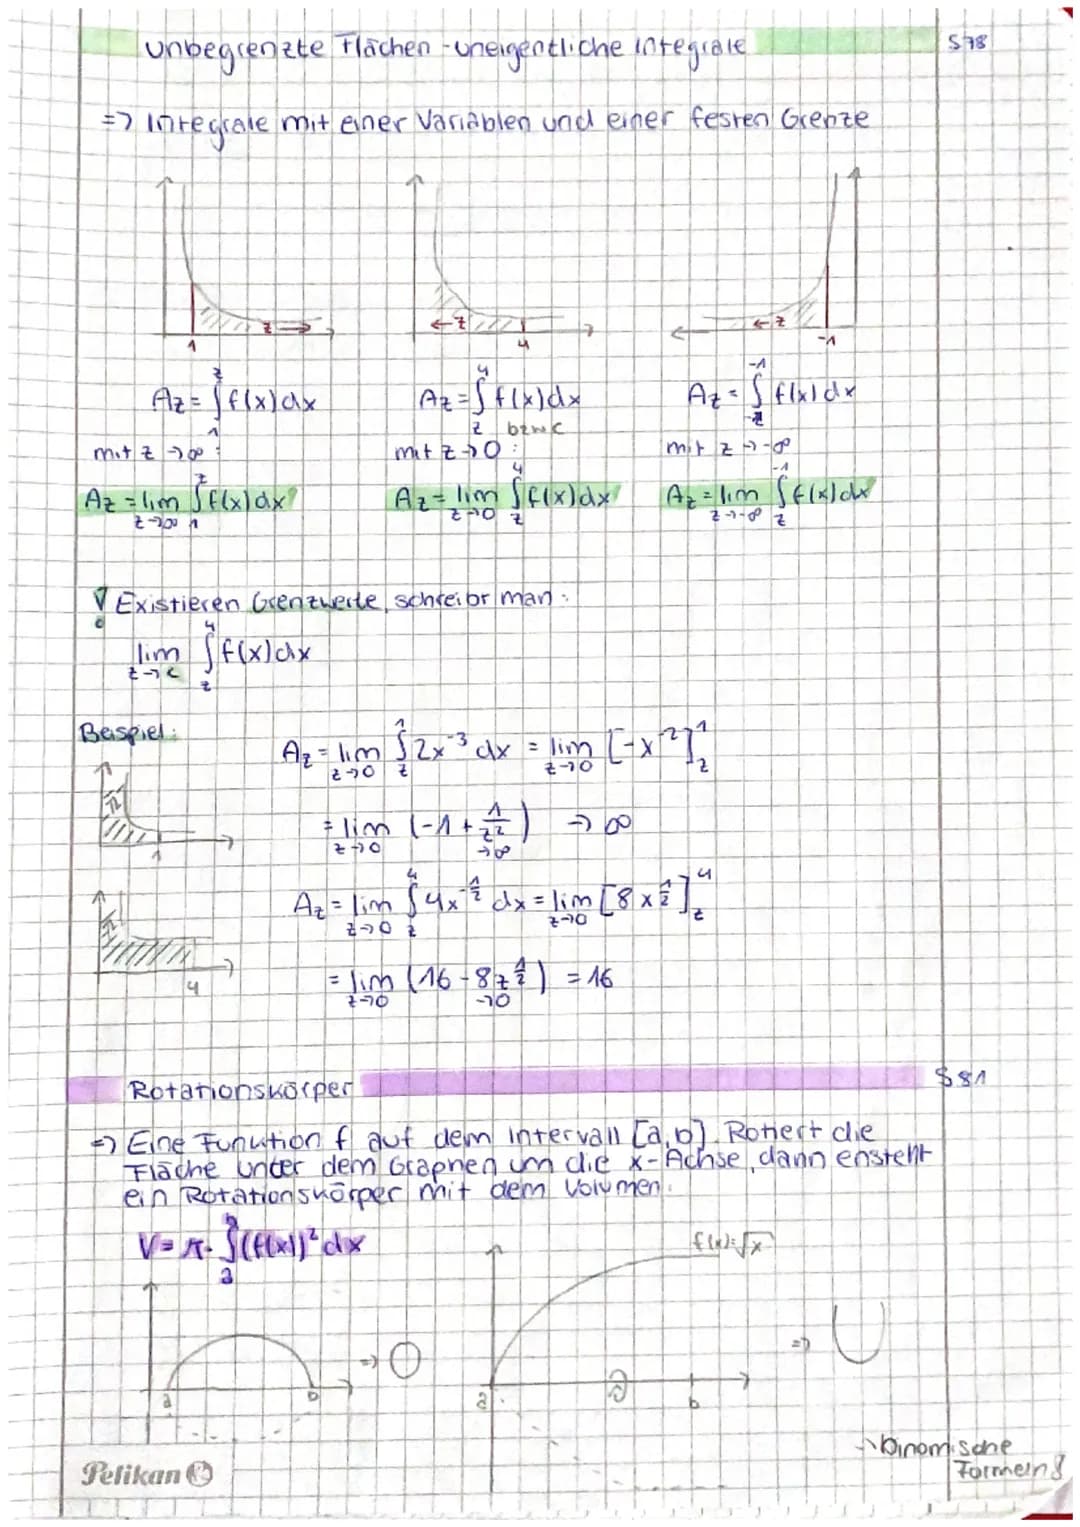 Unbegrenzte Flächen - uneigentliche Integrale S78
=> Integrale mit einer Variablen und einer festen Grenze
z → ← z ← z
1 4 -1
Az = ∫₁ᶻ f(x)dx Az = ∫z⁴ f(x)dx Az = ∫₋z⁻¹ f(x)dx
bzw c
mit z → ∞ : mit z → 0 : mit z → -∞
Az = lim z→∞ ∫₁ᶻ f(x)dx Az = lim z→0 ∫z⁴ f(x)dx Az = lim z→-∞ ∫z⁻¹ f(x)dx
! Existieren Grenzwerte, schreibt man:
lim z→c ∫z⁴ f(x)dx
Beispiel:
Az = lim z→0 ∫z¹ 2x⁻³ dx = lim z→0 [-x⁻²]z¹
1
= lim z→0 (-1 + 1/z²) → ∞
→∞
Az = lim z→0 ∫z⁴ 4x^-1/2 dx = lim z→0 [8x^1/2]z⁴
4
= lim z→0 (16 - 8z^1/2) = 16
→0
Rotationskörper S81
=> Eine Funktion f auf dem Intervall [a,b]. Rotiert die
Fläche unter dem Graphen um die x-Achse, dann ensteht
ein Rotationskörper mit dem Volumen:
V = π · ∫ₐᵇ (f(x))² dx
f(x)=√x
=> =>
a b a b
→ binomische
Formeln!
Pelikan